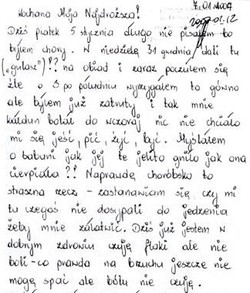 Kochana Moja Najdroższa!
7.01.2007
2007.01.12
Dziś piątek 5 stycznia długo nie pisałem bo
byłem chory. W niedzielę 31 grudnia dali tu
("gulasz")?? na obiad i zaraz poczułem się
źle o 3 po południu wyrzygałem to gówno
ale byłem już zatruty i tak mnie
kałdun bolał do wczoraj nic nie chciało
mi się jeść, pić, żyć, być. Myślałem
o babuni jak jej te jelita gniło jak ona
cierpiała?? Naprawdę choróbsko to
straszna rzecz - zastanawiam się czy mi
tu czegoś nie dosypali do jedzenia
żeby mnie załatwić. Dziś już jestem w
dobrym zdrowiu czuję flaki ale nie
boli - co prawda na brzuchu jeszcze nie
mogę spać ale bóly nie czuję.